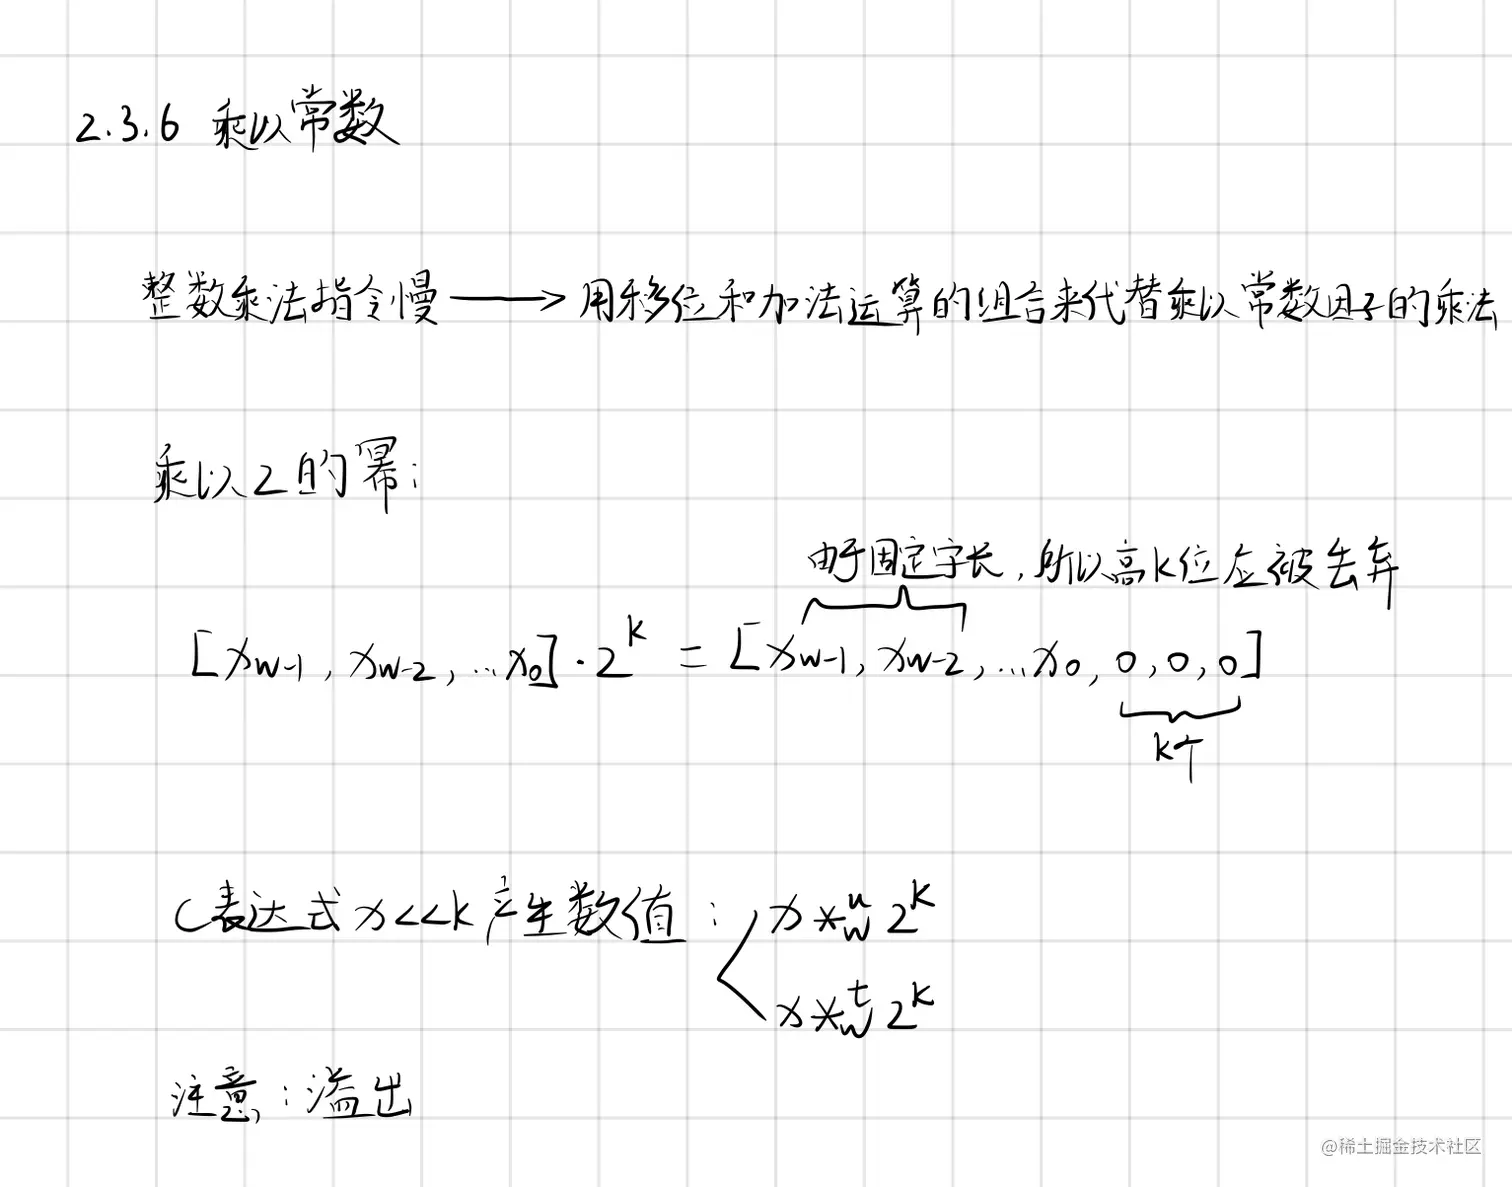 2.3.6 乘以常数
整数乘法指令慢 ⟶ 用移位和加法运算的组合来代替乘以常数因子的乘法
乘以2的幂:
由于固定字长,所以高k位应被丢弃
[x_{w-1}, x_{w-2}, ...x_0]·2^k = [x_{w-1}, x_{w-2}, ...x_0, 0, 0, 0]
k个
C表达式 x<<k 产生数值: x *_w^u 2^k
x *_w^t 2^k
注意:溢出
@稀土掘金技术社区